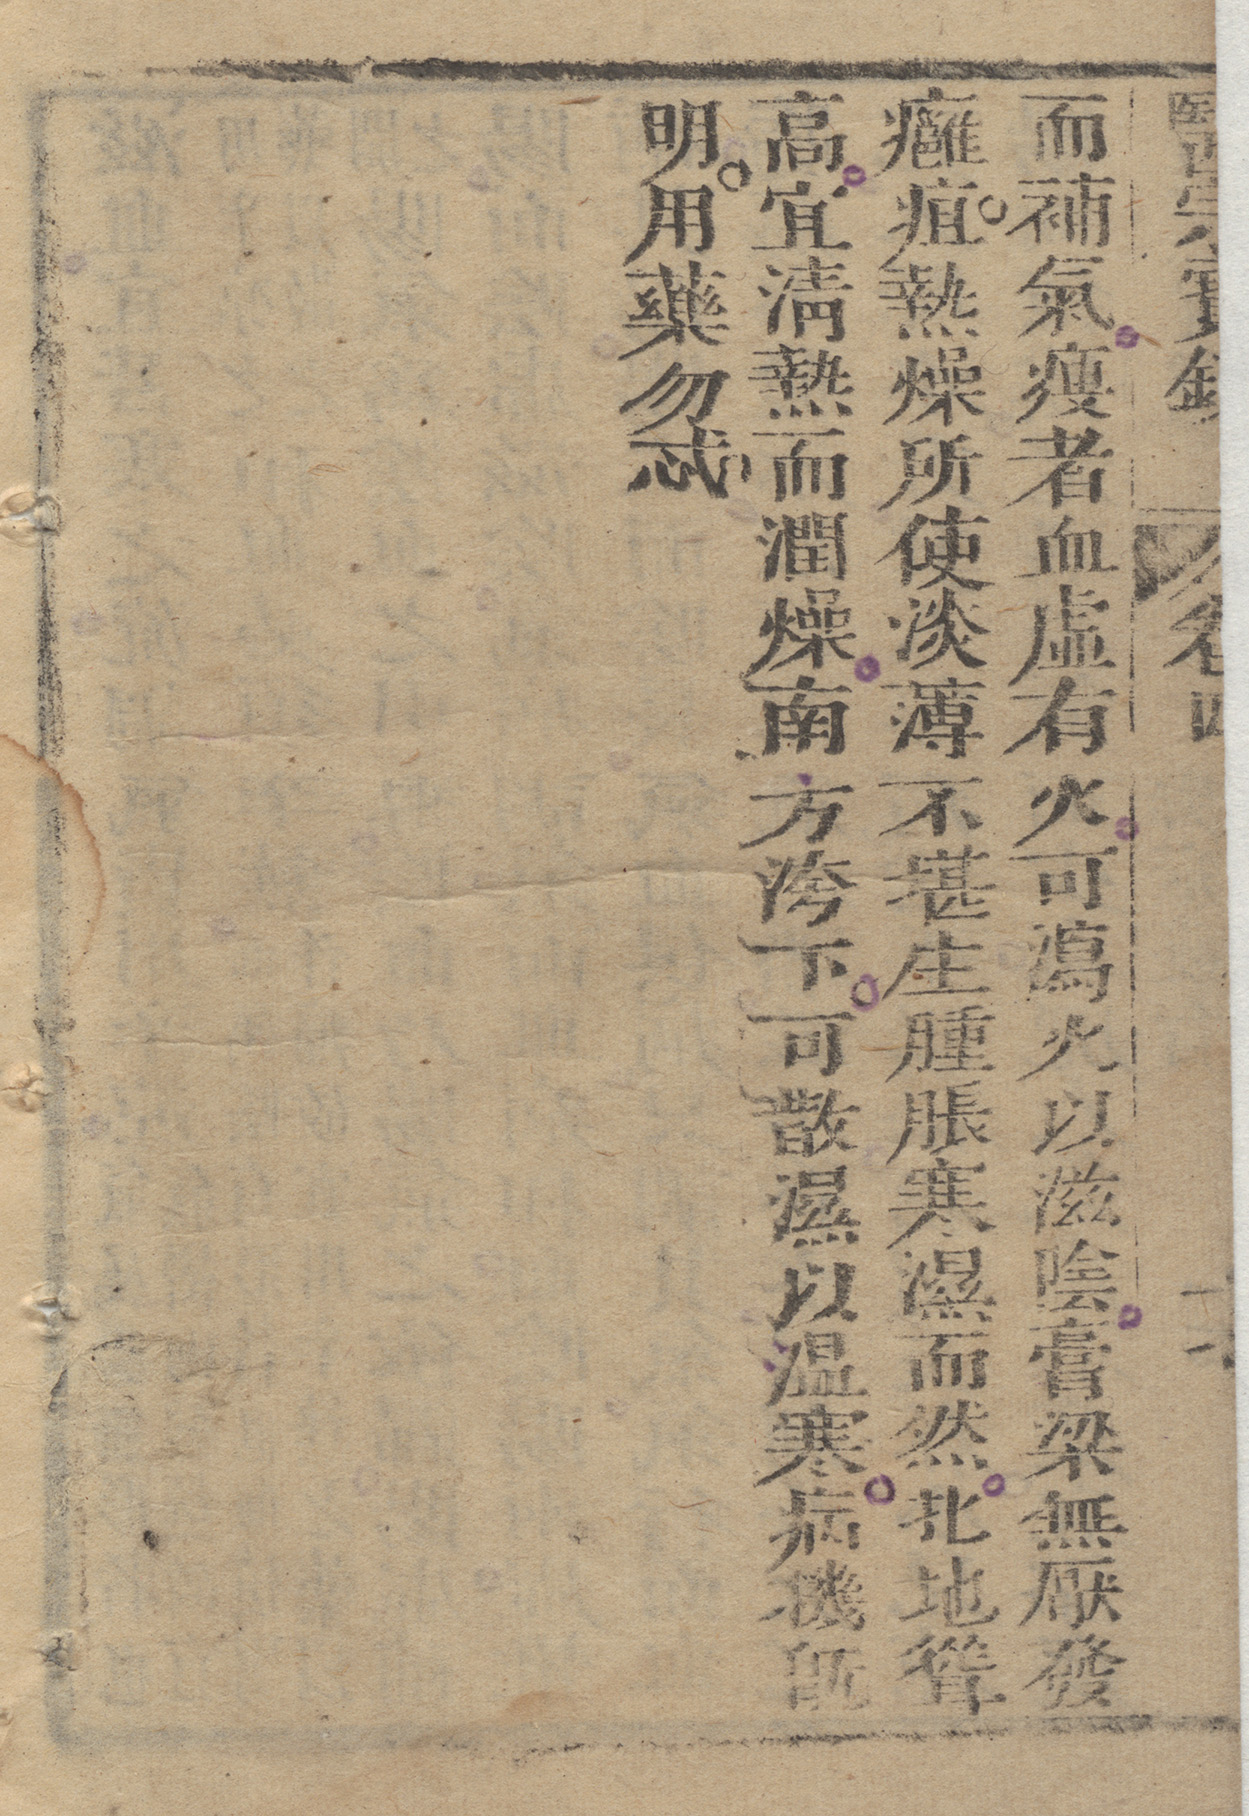 而補氣瘦者血虛有火可瀉火以滋陰膏梁無厭發
癰疽熱燥所使淡薄不堪生腫脹寒濕而然北地聳
高宜清熱而潤燥南方洿下可散濕以温寒病機既
明用藥勿忒
卷四